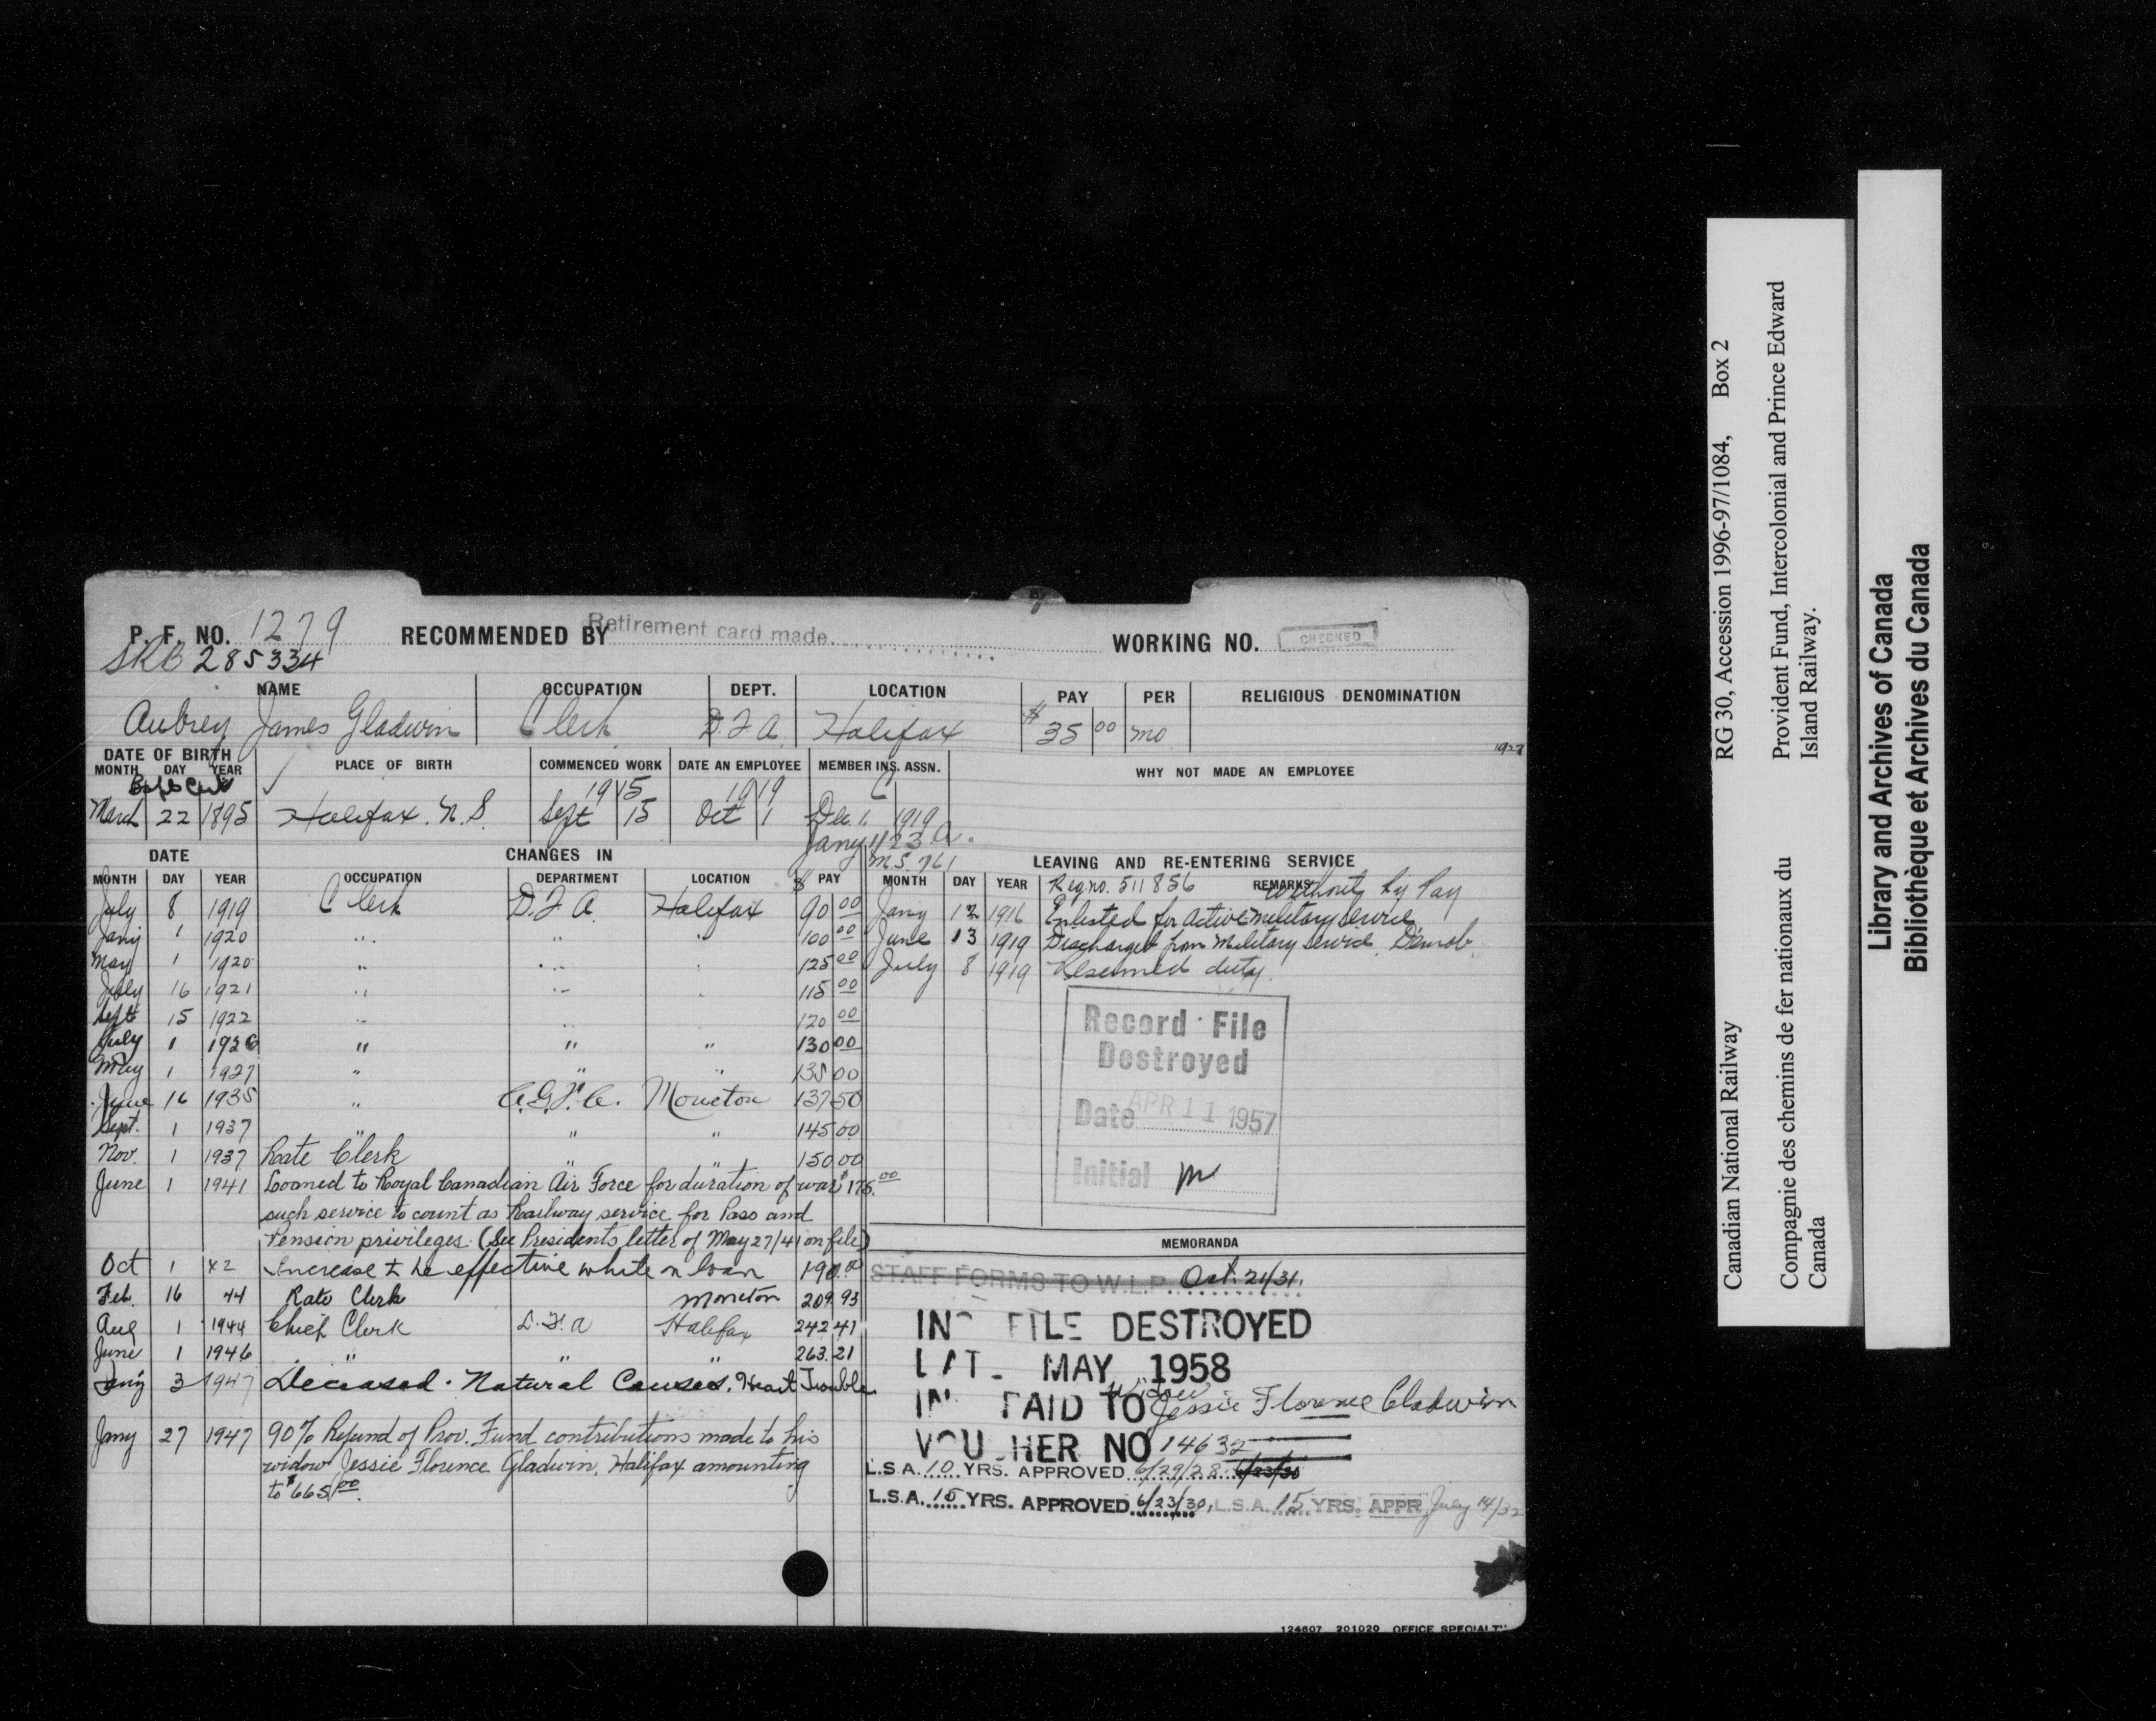 P. F. NO. 1279 RECOMMENDED BY Retirement card made. WORKING NO. CHECKED
SRB 285334
NAME OCCUPATION DEPT. LOCATION PAY PER RELIGIOUS DENOMINATION
Aubrey James Gladwin Clerk D.F.A. Halifax $35 00 mo
1927
DATE OF BIRTH PLACE OF BIRTH COMMENCED WORK DATE AN EMPLOYEE MEMBER INS. ASSN. WHY NOT MADE AN EMPLOYEE
MONTH DAY YEAR
1915 1919 C
March 22 1895 Halifax. N.S. Sept 15 Oct 1 Dec. 1, 1919
Jany 1/23 A.
DATE CHANGES IN M.S. 761 LEAVING AND RE-ENTERING SERVICE
MONTH DAY YEAR OCCUPATION DEPARTMENT LOCATION $ PAY MONTH DAY YEAR REMARKS
Reg no. 511856 authority by Pay
July 8 1919 Clerk D.F.A. Halifax 90 00 Jany 12 1916 Enlisted for active military service
Jany 1 1920 " " " 100 00 June 13 1919 Discharged from military service. Demob.
May 1 1920 " " " 125 00 July 8 1919 Resumed duty.
July 16 1921 " " " 115 00
Sept 15 1922 " " " 120 00
July 1 1926 " " " 130 00
May 1 1927 " " " 135 00
June 16 1935 " A.G.F.A. Moncton 137 50
Sept. 1 1937 " " " 145 00
Nov. 1 1937 Rate Clerk " " 150 00
June 1 1941 Loaned to Royal Canadian Air Force for duration of war $175.00
such service to count as Railway service for Pass and
Pension privileges (See Presidents letter of May 27/41 on file)
Oct 1 42 Increase to be effective while on loan 190.00
Feb. 16 44 Rate Clerk Moncton 209.93
Aug 1 1944 Chief Clerk D.F.A Halifax 242 41
June 1 1946 " " " 263.21
Jany 3 1947 Deceased. Natural Causes. Heart Trouble.
Jany 27 1947 90% Refund of Prov. Fund contributions made to his
widow Jessie Florence Gladwin, Halifax amounting
to $665.00
Record File
Destroyed
Date APR 11 1957
Initial
MEMORANDA
STAFF FORMS TO W.L.P. Oct. 21/31.
INS FILE DESTROYED
DATE MAY 1958
INS PAID TO widow Jessie Florence Gladwin
VOUCHER NO 14632
L.S.A. 10 YRS. APPROVED 6/29/28. 6/23/30
L.S.A. 15 YRS. APPROVED 6/23/30, L.S.A. 15 YRS. APPR July 14/32
124607 201020 OFFICE SPECIALTY
Canadian National Railway RG 30, Accession 1996-97/1084, Box 2
Compagnie des chemins de fer nationaux du Provident Fund, Intercolonial and Prince Edward
Canada Island Railway.
Library and Archives of Canada
Bibliothèque et Archives du Canada